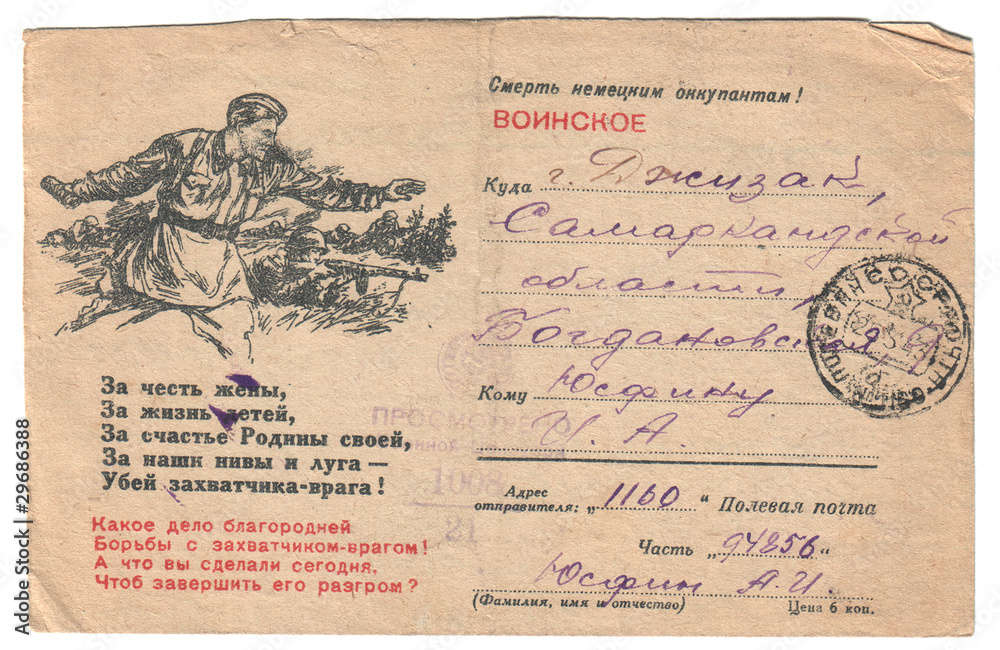 Смерть немецким оккупантам!
ВОИНСКОЕ
Куда г. Джизак,
Самаркандской
области,
Богдановская 9
Кому Юсфину
И. А.
Адрес отправителя: „1160“ Полевая почта
Часть „94256“
Юсфин А.И.
(Фамилия, имя и отчество) Цена 6 коп.
За честь жены,
За жизнь детей,
За счастье Родины своей,
За наши нивы и луга —
Убей захватчика-врага!
Какое дело благородней
Борьбы с захватчиком-врагом!
А что вы сделали сегодня,
Чтоб завершить его разгром?
ПРОСМОТРЕНО
1008
21
Adobe Stock | #29686388